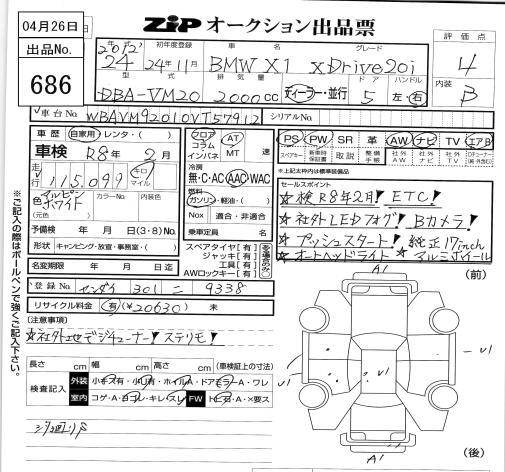 04月26日
出品No.
686
ZIP オークション出品票
年式 初年度登録 車名 グレード
2012
24 24年11月 BMW X1 xDrive20i
型式 排気量 ドア ハンドル
DBA-VM20 2000cc ディーラー・並行 5 左・右
評価点
4
内装
B
車台No. WBAVM92010VT57912 シリアルNo.
車歴 自家用・レンタ・( )
車検 R8年2月
走行 115,099 キロ マイル
色 アルピンホワイト カラーNo. 内装色
(元色)
予備検 年 月 日(3・8)No.
形状 キャンピング・放宣・事務室・( )
フロア コラム インパネ AT MT 速
冷房
無・C・AC AAC WAC
燃料
ガソリン・軽油・( )
Nox 適合・非適合
乗車定員 名
スペアタイヤ[有]
ジャッキ[有]
工具[有]
AWロックキー[有]
PS PW SR 革 AW ナビ TV エアB
スペアキー 新車時保証書 取説 整備手帳 社外AW 社外ナビ 社外TV
※上記太枠内は後日クレーム対象になります。
セールスポイント
☆検R8年2月! ETC!
☆社外LEDフォグ! Bカメラ!
☆プッシュスタート! 純正17inch
☆オートヘッドライト ☆アルミホイール
名変期限 年 月 日迄
登録No. センダイ 301 ニ 9338
リサイクル料金 有(¥20630) 未
(注意事項)
☆社外地デジチューナー! ステリモ!
長さ cm 幅 cm 高さ cm (車検証上の寸法)
検査記入 外装 小キズ有・小凹有・ホイルA・ドアミラーA・ワレ
室内 コゲA・ヨゴレ・キレ・スレ FW トビ石・A・×要ス
※ご記入の際はボールペンで強くご記入下さい。
A1
(前)
U1
U1
A1
(後)